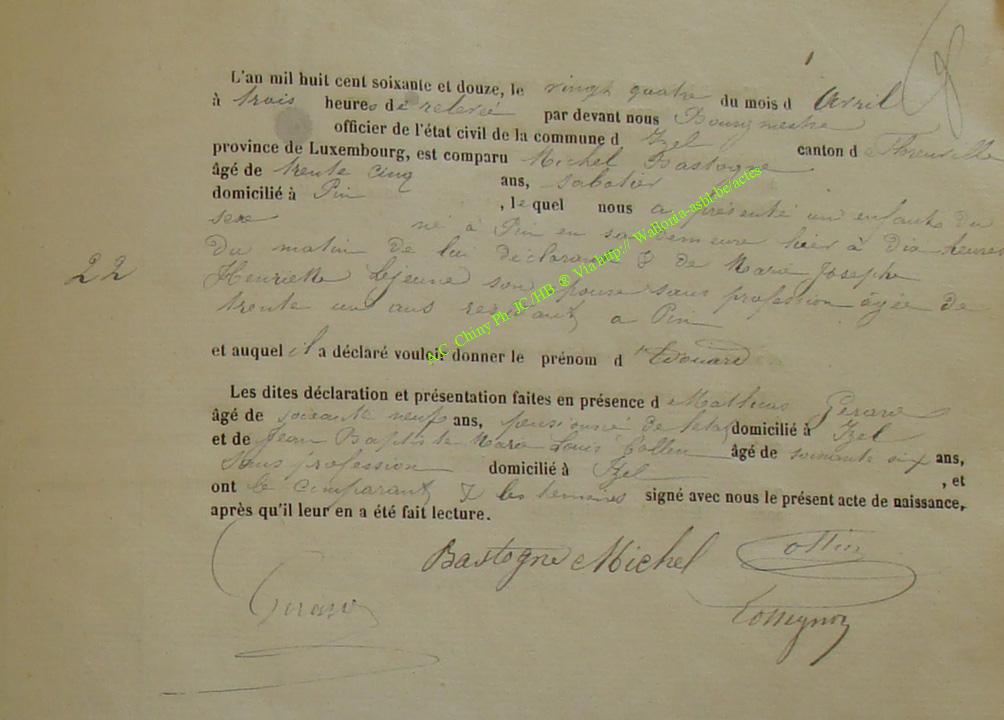 L'an mil huit cent soixante et douze, le vingt quatre du mois d Avril
à trois heures de relevée par devant nous Bourgmestre
officier de l'état civil de la commune d Izel canton de Florenville
province de Luxembourg, est comparu Michel Bastogne
âgé de trente cinq ans, sabotier
domicilié à Pin , lequel nous a présenté un enfant du
sexe né à Pin en sa demeure hier à dix heures
du matin de lui déclarant & de Marie Josephe
22 Henriette Lejeune son épouse sans profession âgée de
trente un ans résidant à Pin
et auquel il a déclaré vouloir donner le prénom d'Edouard
Les dites déclaration et présentation faites en présence de Mathias Gerard
âgé de soixante neuf ans, pensionné de l'etat domicilié à Izel
et de Jean Baptiste Marie Louis Collin âgé de soixante six ans,
sans profession domicilié à Izel , et
ont le comparant & les temoins signé avec nous le présent acte de naissance,
après qu'il leur en a été fait lecture.
Bastogne Michel Collin
Gerard
A.C. Chiny Ph. JC/HB. ® Via http:// Wallonia-asbl.be/actes